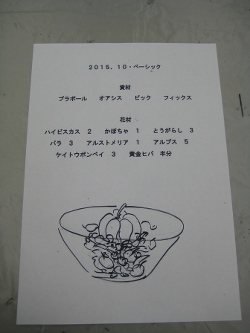 2015.10・ベーシック
資材
プラボール　オアシス　ピック　フィックス
花材
ハイビスカス　2　かぼちゃ　1　とうがらし　3
バラ　3　アルストメリア　1　アルプス　5
ケイトウボンベイ　3　黄金ヒバ　半分